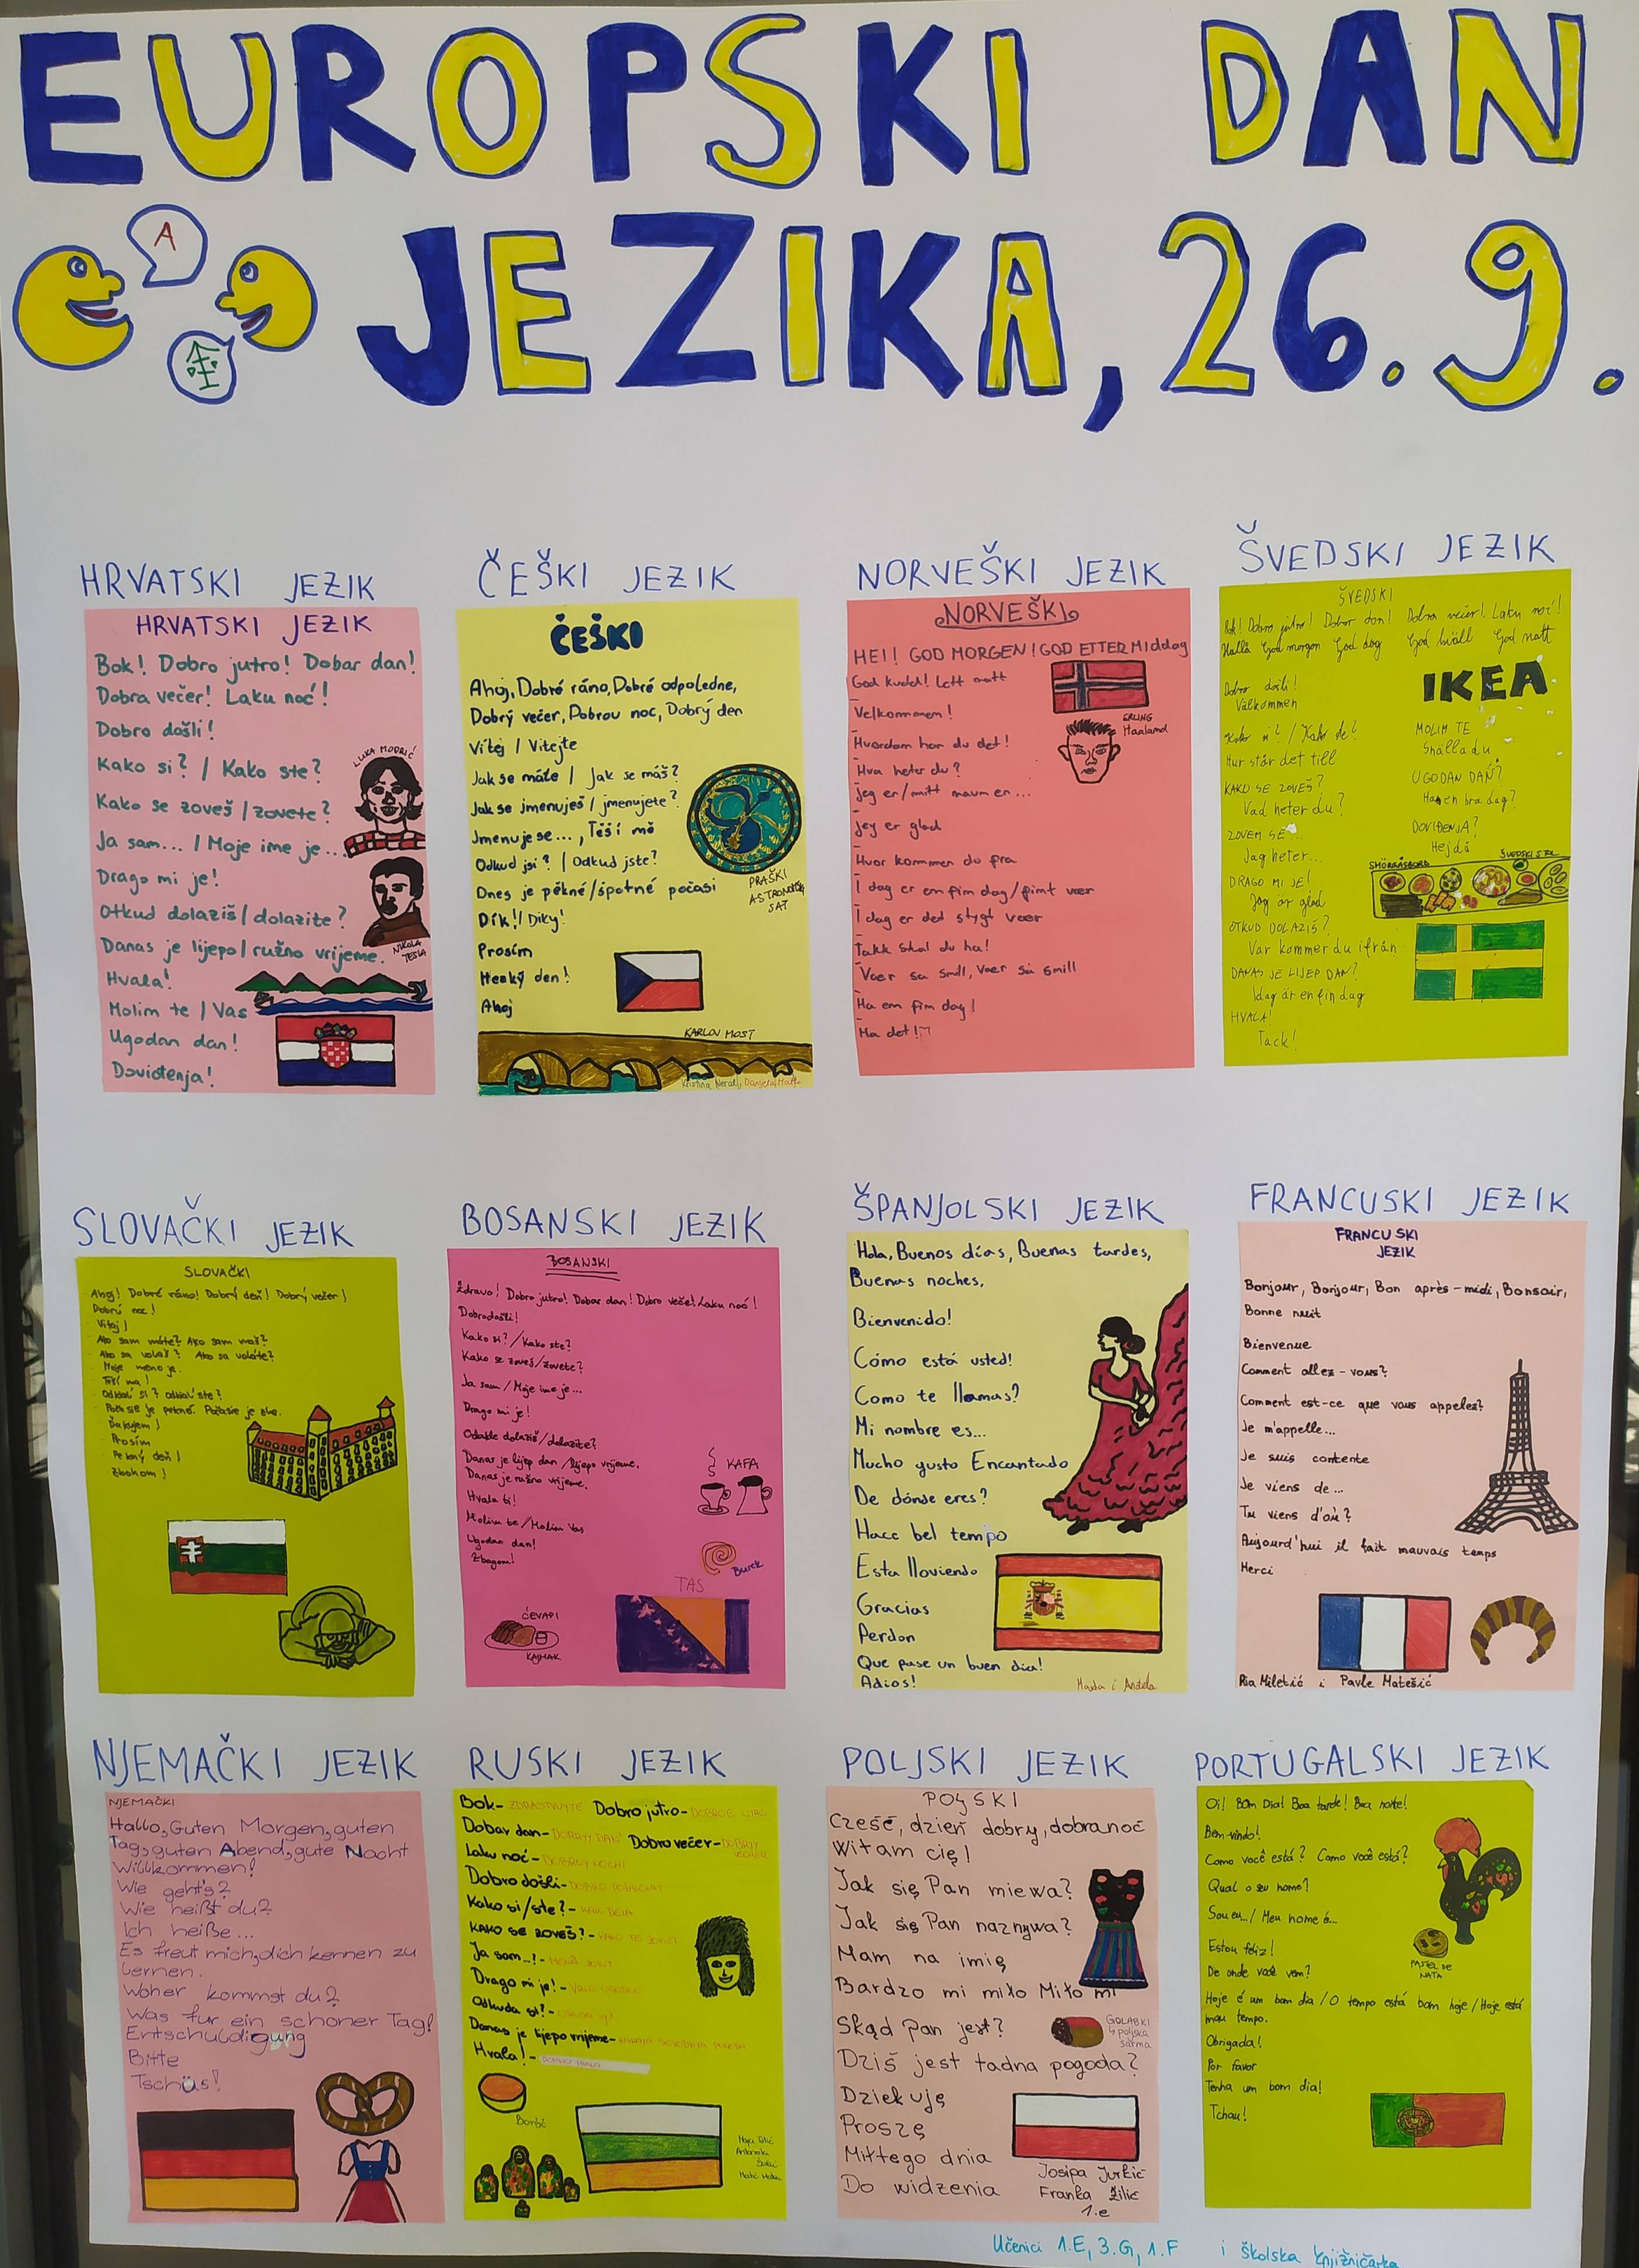 EUROPSKI DAN
JEZIKA, 26.9.
A
HRVATSKI JEZIK
HRVATSKI JEZIK
Bok! Dobro jutro! Dobar dan!
Dobra večer! Laku noć!
Dobro došli!
Kako si? / Kako ste?
Kako se zoveš / zovete?
Ja sam... / Moje ime je...
Drago mi je!
Otkud dolaziš / dolazite?
Danas je lijepo / ružno vrijeme.
Hvala!
Molim te / Vas
Ugodan dan!
Doviđenja!
LUKA MODRIĆ
NIKOLA
TESLA
ČEŠKI JEZIK
ČEŠKI
Ahoj, Dobré ráno, Dobré odpoledne,
Dobrý večer, Dobrou noc, Dobrý den
Vítej / Vitejte
Jak se máte / Jak se máš?
Jak se jmenuješ / jmenujete?
Jmenuje se..., Těší mě
Odkud jsi? / Odkud jste?
Dnes je pěkné / špatné počasi
Dík! / Diky!
Prosím
Hezký den!
Ahoj
PRAŠKI
ASTRONOMSKI
SAT
KARLOV MOST
NORVEŠKI JEZIK
NORVEŠKI
HEI! GOD MORGEN! GOD ETTERMIddag
God kveld! Lett natt
Velkommen!
Hvordan har du det!
Hva heter du?
jeg er / mitt navn er...
Jey er glad
Hvor kommen du fra
I dag er em fim dag / fimt vær
I dag er ded stygt vær
Takk skal du ha!
Vær så snill, Vær så snill
Ha em fim dag!
Ha det!
ERLING
Haaland
ŠVEDSKI JEZIK
ŠVEDSKI
Bok! Dobro jutro! Dobar dan! Dobra večer! Laku noć!
Hallå God morgon God dag God kväll God natt
Dobro došli!
Välkommen
Kako si? / Kako ste?
Hur står det till
KAKO SE ZOVEŠ?
Vad heter du?
ZOVEM SE...
Jag heter...
DRAGO MI JE!
Jag är glad
OTKUD DOLAZIŠ?
Var kommer du ifrån
DANAS JE LIJEP DAN?
Idag är en fin dag
HVALA!
Tack!
IKEA
MOLIM TE
Snälla du
UGODAN DAN?
Ha en bra dag?
DOVIĐENJA?
Hejdå
SMÖRGÅSBORD
ŠVEDSKI STOL
SLOVAČKI JEZIK
SLOVAČKI
Ahoj! Dobré ráno! Dobrý deň! Dobrý večer!
Dobrú noc!
Vitaj!
Ako sam máte? Ako sam maš?
Ako sa volaš? Ako sa voláte?
Moje meno je
Teší ma!
Odkiaľ si? Odkiaľ ste?
Počasie je pekné. Počasie je zlé.
Ďakujem!
Prosím
Pekný deň!
Zbohom!
BOSANSKI JEZIK
BOSANSKI
Zdravo! Dobro jutro! Dobar dan! Dobro veče! Laku noć!
Dobrodošli!
Kako si? / Kako ste?
Kako se zoveš / zovete?
Ja sam / Moje ime je...
Drago mi je!
Odakle dolaziš / dolazite?
Danas je lijep dan / lijepo vrijeme.
Danas je ružno vrijeme.
Hvala ti!
Molim te / Molim Vas
Ugodan dan!
Zbogom!
KAFA
Burek
TAS
ĆEVAPI
KAJMAK
ŠPANJOLSKI JEZIK
Hola, Buenos días, Buenas tardes,
Buenas noches,
Bienvenido!
Cómo está usted!
Como te llamas?
Mi nombre es...
Mucho gusto Encantado
De dónde eres?
Hace bel tempo
Esta lloviendo
Gracias
Perdon
Que pase un buen dia!
Adios!
FRANCUSKI JEZIK
FRANCUSKI
JEZIK
Bonjour, Bonjour, Bon après-midi, Bonsoir,
Bonne nuit
Bienvenue
Comment allez-vous?
Comment est-ce que vous appelez?
Je m'appelle...
Je suis contente
Je viens de...
Tu viens d'où?
Aujourd'hui il fait mauvais temps
Merci
Ria Miletić i Pavle Matešić
NJEMAČKI JEZIK
NJEMAČKI
Hallo, Guten Morgen, guten
Tag, guten Abend, gute Nacht
Willkommen!
Wie geht's?
Wie heißt du?
Ich heiße...
Es freut mich, dich kennen zu
lernen.
Woher kommst du?
Was für ein schöner Tag!
Entschuldigung
Bitte
Tschüs!
RUSKI JEZIK
Bok- ZDRASTVUYTE Dobro jutro- DOBROE UTRO
Dobar dan- DOBRYY DAN' Dobra večer- DOBRYY
Laku noć-
Dobro došli-
Kako si/ste?- KAK DELA
KAKO SE ZOVEŠ?-
Ja sam...!-
Drago mi je!-
Odkuda si?-
Danas je lijepo vrijeme-
Hvala!-
POLJSKI JEZIK
POLJSKI
Cześć, dzień dobry, dobranoc
Witam cię!
Jak się Pan miewa?
Jak się Pan naznywa?
Mam na imię
Bardzo mi miło Miło mi
Skąd Pan jest?
Dziś jest ładna pogoda?
Dziekuję
Proszę
Miłtego dnia
Do widzenia
GOŁABKI
poljska
sarma
Josipa Jurkić
Franka Žilić
1.e
PORTUGALSKI JEZIK
Oi! Bom Dia! Boa tarde! Boa noite!
Bem-vindo!
Como você está? Como você está?
Qual o seu nome?
Sou eu... / Meu nome é...
Estou feliz!
De onde você vem?
Hoje é um bom dia / O tempo está bom hoje / Hoje está
mau tempo.
Obrigada!
Por favor
Tenha um bom dia!
Tchau!
PASTEL DE
NATA
Učenici 1.E, 3.G, 1.F i školska knjižničarka